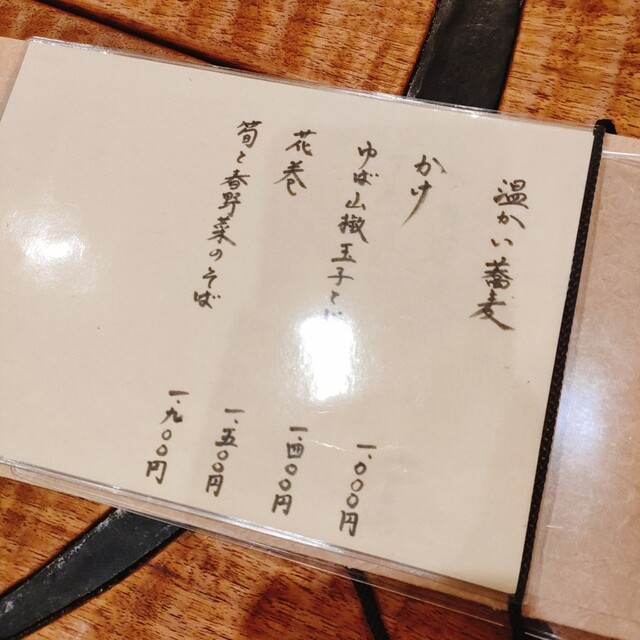 温かい蕎麦
かけ
一、〇〇〇円
ゆば山椒玉子とじ
一、四〇〇円
花巻
一、五〇〇円
筍と春野菜のそば
一、九〇〇円